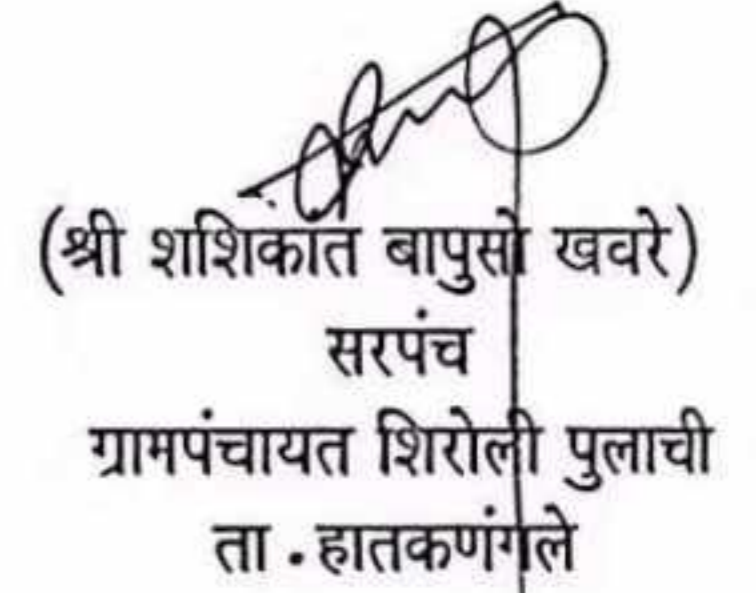 (श्री शशिकांत बापुसो खवरे)
सरपंच
ग्रामपंचायत शिरोली पुलाची
ता. हातकणंगले